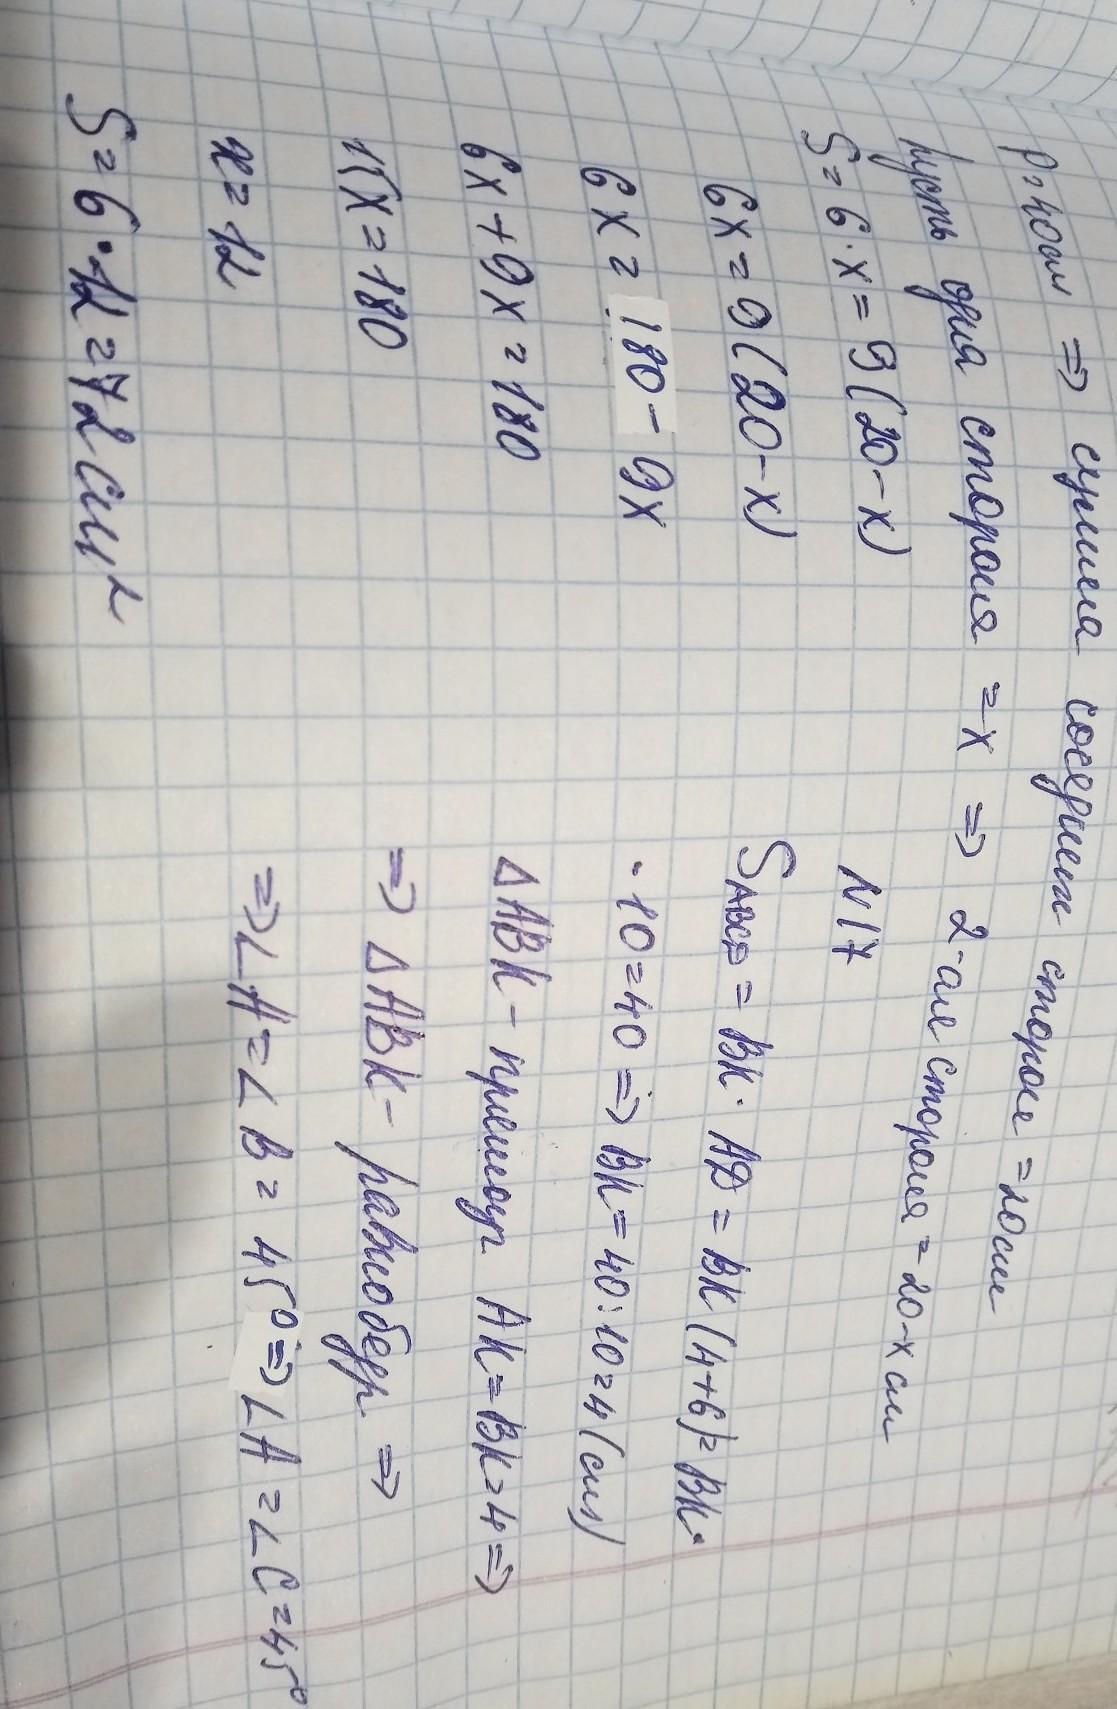 P=40см => сумма соседних сторон =20см
Пусть одна сторона =x => 2-ая сторона = 20-x см
S=6·x=9(20-x)
6x=9(20-x)
6x=180-9x
6x+9x=180
15x=180
x=12
S=6·12=72см²
N17
SABCD = BK· AD = BK(4+6)=BK·
·10=40=> BK=40:10=4(см)
△ABK- прямоуг AK=BK=4=>
=> △ABK- равнобедр =>
=>∠A=∠B=45°=>∠A=∠C=45°